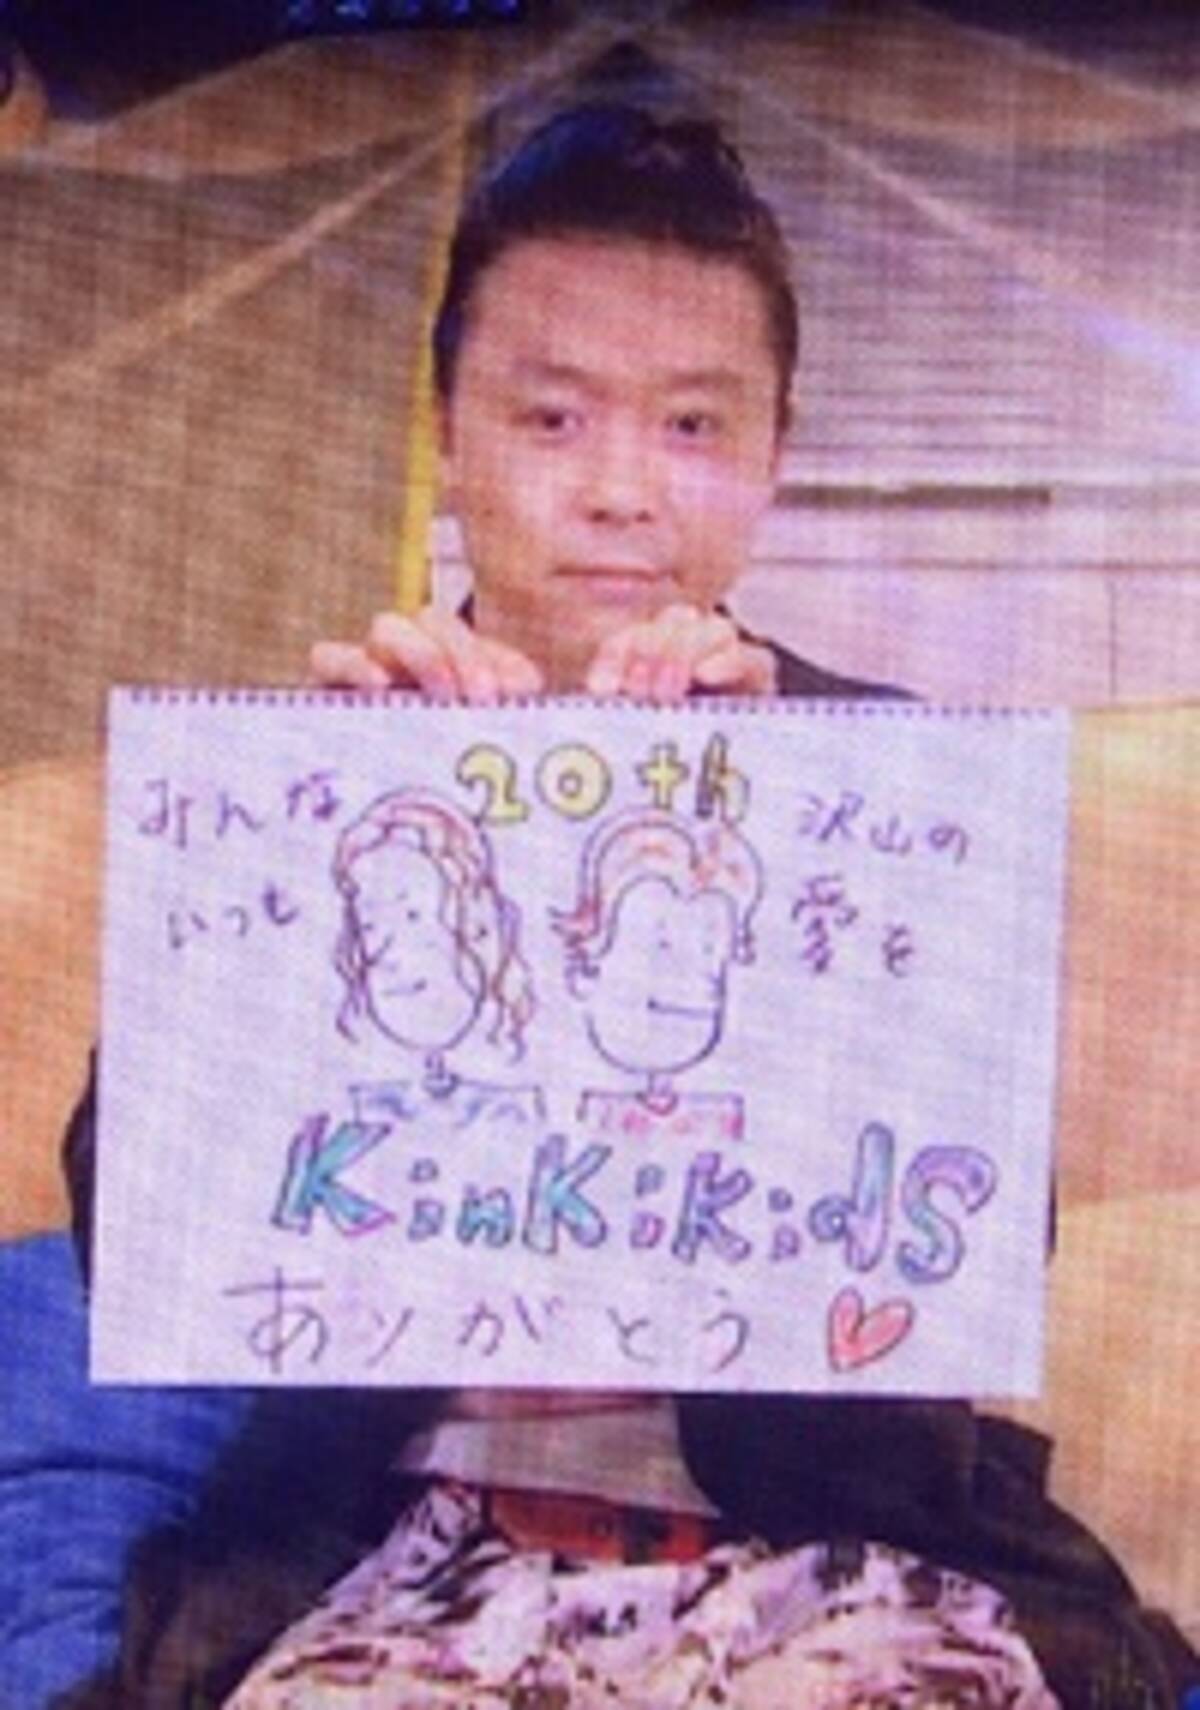 20th
みんな
いつも
沢山の
愛を
KinKi Kids
ありがとう♡